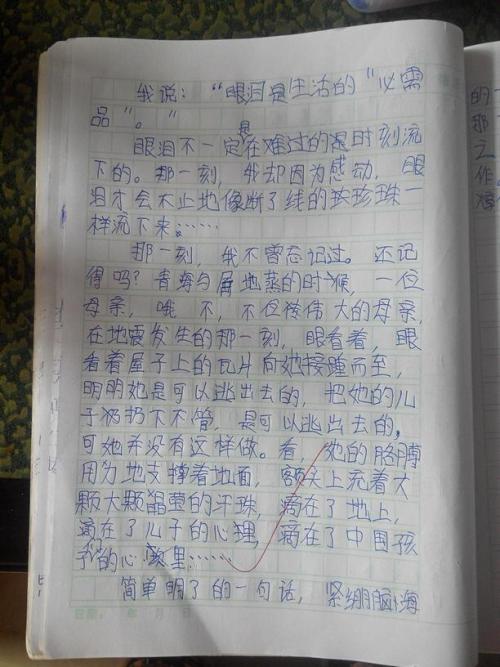 我说：“眼泪是生活的“必需
品”。”
眼泪不一定是在难过的是时刻流
下的。那一刻，我却因为感动，眼
泪才会不止地像断了线的珍珠一
样流下来……
那一刻，我不曾忘记过。还记
得吗？青海 地 的时候，一位
母亲，哦 不，不位 伟大的母亲，
在地震发生的那一刻，眼看着，眼
看着屋子上的瓦片向她接踵而至，
明明她是可以逃出去的，把她的儿
子扔扔下不管，是可以逃出去的，
可她并没有这样做。看，她的胳膊
用力地支撑着地面，额头上充着大
颗大颗晶莹的汗珠，滴在了地上，
滴在了儿子的心理，滴在了中国孩
子的心 里……
简单明了的一句话，紧绷脑海
的
那
之
作
日期： 年 月 日